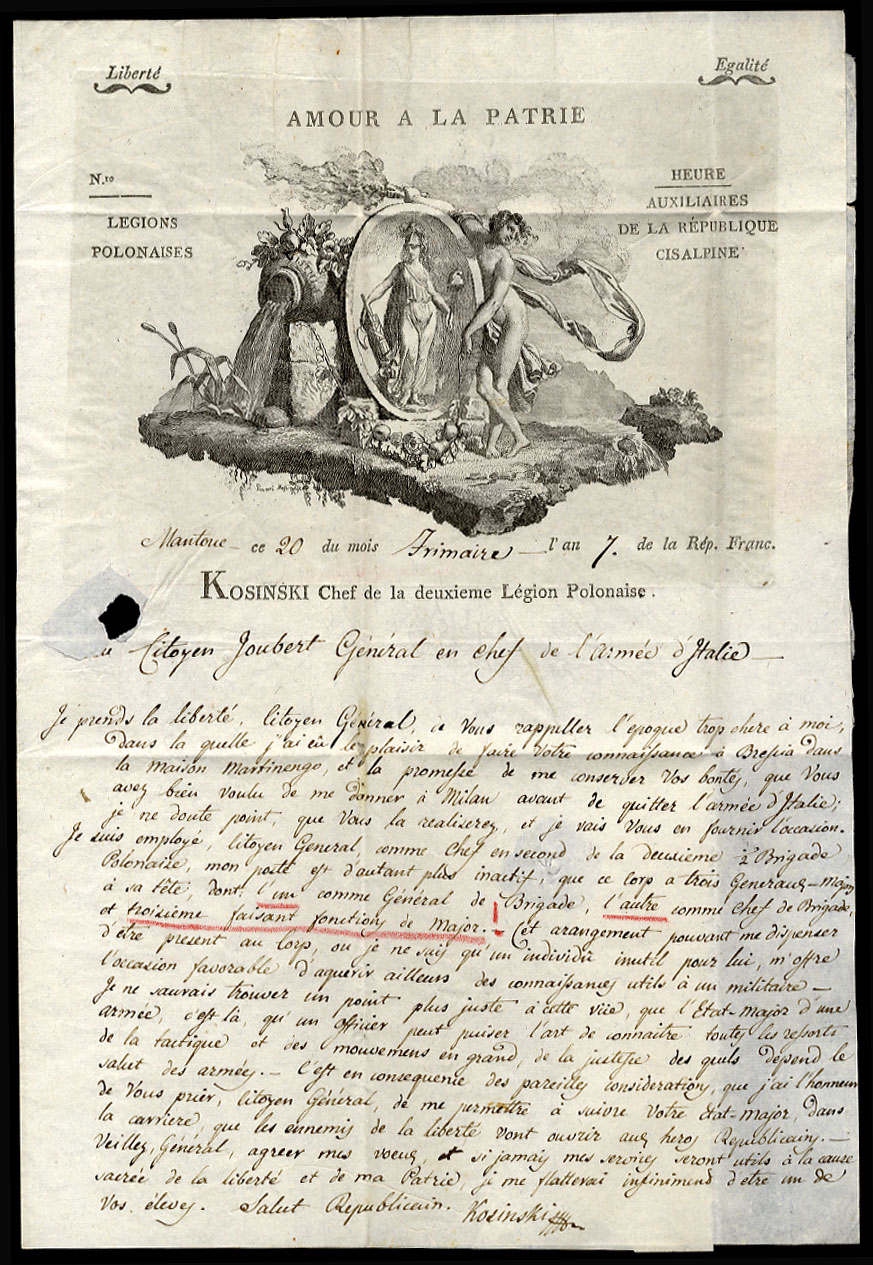 Liberté
Egalité
AMOUR A LA PATRIE
N.ro
HEURE
LEGIONS
POLONAISES
AUXILIAIRES
DE LA RÉPUBLIQUE
CISALPINE
Mantoue ce 20 du mois Frimaire l'an 7. de la Rép. Franc.
KOSINSKI Chef de la deuxieme Légion Polonaise.
Citoyen Joubert Général en chef de l'Armée d'Italie —
Je prends la liberté, Citoyen Général, de Vous rappeller l'epoque trop chere à moi,
dans la quelle j'ai eû le plaisir de faire Votre connaissance à Brescia dans
la Maison Martinengo, et la promesse de me conserver Vos bontés, que Vous
avez bien voulu de me donner à Milan avant de quitter l'armée d'Italie;
je ne doute point, que Vous la realiserez, et je vais Vous en fournir l'occasion.
Je suis employé, Citoyen General, comme Chef en second de la deuxieme ½ Brigade
Polonaise, mon poste est d'autant plus inactif, que ce corp a trois Generaux-Major
à sa tête, dont l'un comme Général de Brigade, l'autre comme chef de Brigade,
et troisieme faisant fonctions de Major. — Cet arangement pouvant me dispenser
d'être present au Corp, ou je ne sais qu'un individu inutil pour lui, m'offre
l'occasion favorable d'aquerir ailleurs des connaissances utils à un militaire —
Je ne saurais trouver un point plus juste à cette vüe, que l'Etat-Major d'une
armée, c'est là, qu'un officier peut puiser l'art de connaitre toutes les ressorts
de la tactique et des mouvemens en grand, de la justesse des quels dépend le
salut des armées. — C'est en consequence des pareilles considerations, que j'ai l'honneur
de Vous prier, Citoyen Général, de me permettre à suivre Votre Etat-Major, dans
la carriere, que les ennemis de la liberté vont ouvrir aux heros Republicains. —
Veillez, Général, agreer mes voeux, et si jamais mes services seront utils à la cause
sacrée de la liberté et de ma Patrie, je me flatterai infiniment d'etre un de
Vos éleves. Salut Republicain. Kosinski